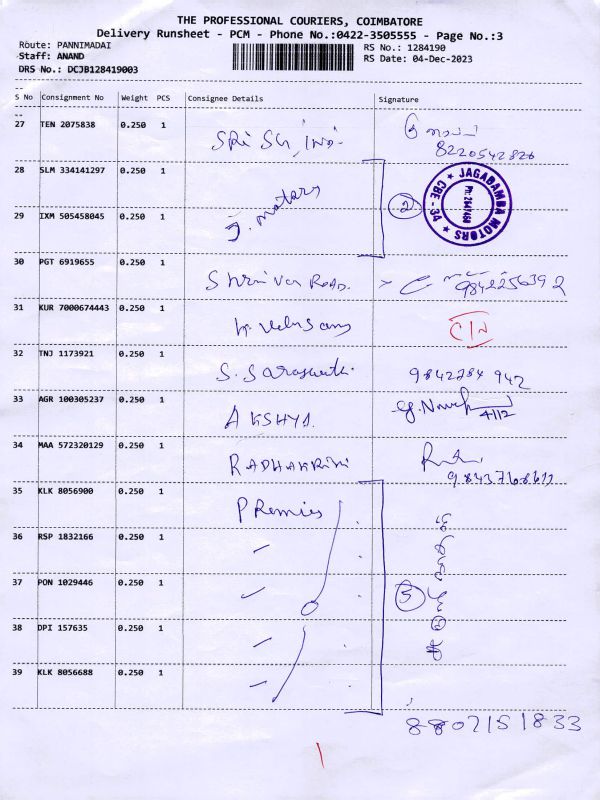 THE PROFESSIONAL COURIERS, COIMBATORE
Delivery Runsheet - PCM - Phone No.:0422-3505555 - Page No.:3
Route: PANNIMADAI RS No.: 1284190
Staff: ANAND RS Date: 04-Dec-2023
DRS No.: DCJB128419003
S No Consignment No Weight PCS Consignee Details Signature
27 TEN 2075838 0.250 1
8220542826
28 SLM 334141297 0.250 1
J. motors 2 JAGADAMBA MOTORS * CBE - 34 *
29 IXM 505458045 0.250 1
30 PGT 6919655 0.250 1
9842256392
31 KUR 7000674443 0.250 1
32 TNJ 1173921 0.250 1 S. Saraswathi 9842784 942
33 AGR 100305237 0.250 1 AKSHYA. 4/12
34 MAA 572320129 0.250 1 RADHAKRISH
35 KLK 8056900 0.250 1 PRemies
36 RSP 1832166 0.250 1
37 PON 1029446 0.250 1 5
38 DPI 157635 0.250 1
39 KLK 8056688 0.250 1
8807151833